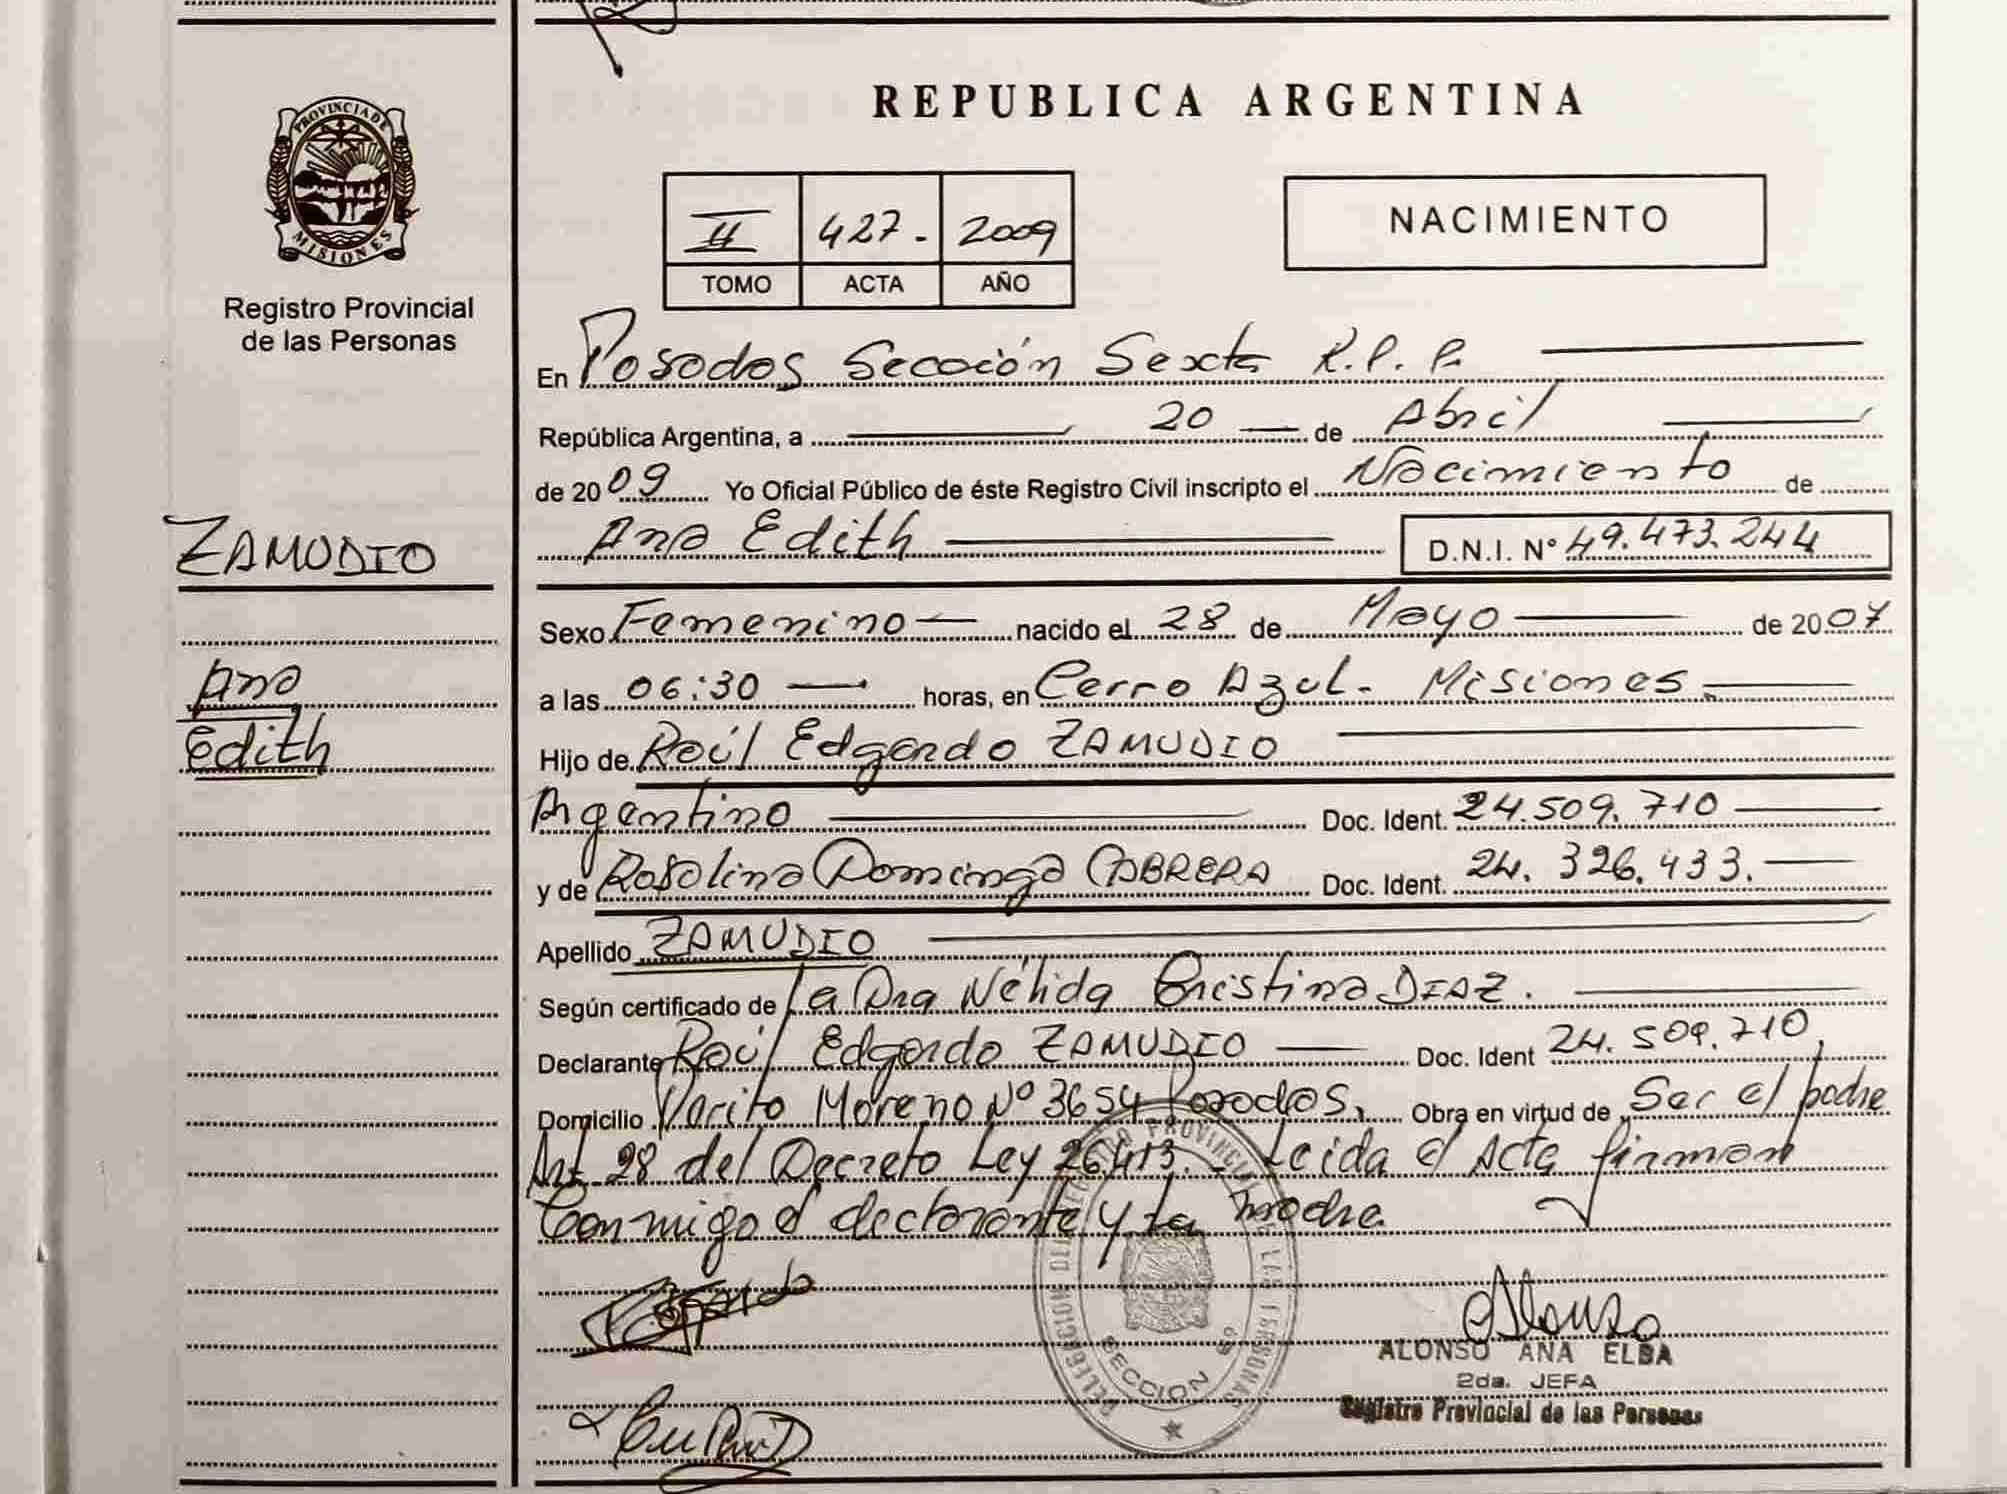 REPUBLICA ARGENTINA
PROVINCIA DE
MISIONES
Registro Provincial
de las Personas
II 427. 2009
TOMO ACTA AÑO
NACIMIENTO
En Posadas Sección Sexta R.P.P.
República Argentina, a 20 de Abril
de 2009 Yo Oficial Público de éste Registro Civil inscripto el Nacimiento de
Ana Edith D.N.I. N° 49.473.244
ZAMUDIO
Ana
Edith
Sexo Femenino nacido el 28 de Mayo de 2007
a las 06:30 horas, en Cerro Azul. Misiones.
Hijo de Raúl Edgardo ZAMUDIO
Argentino Doc. Ident. 24.509.710
y de Rosalina Dominga CABRERA Doc. Ident. 24.326.433.
Apellido ZAMUDIO
Según certificado de La Dra Nélida Cristina DIAZ.
Declarante Raúl Edgardo ZAMUDIO Doc. Ident 24.509.710
Domicilio Moreno Nº 3654 Posadas. Obra en virtud de Ser el padre
Art. 28 del Decreto Ley 26.413. Leida el Acta firman
Conmigo el declarante y la madre
Alonso
ALONSO ANA ELBA
2da. JEFA
Registro Provincial de las Personas
SECCION